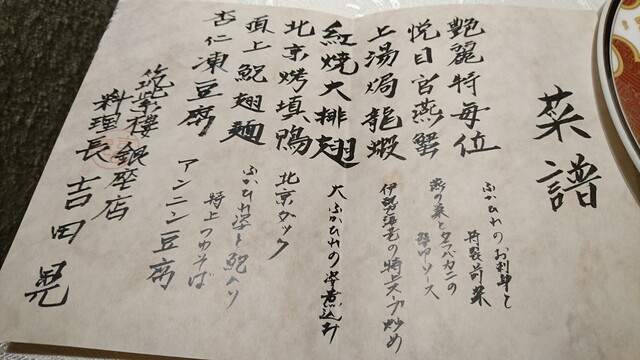 菜譜
艶麗特毎位
ふかひれのお刺身と
特製前菜
悦目官燕蟹
燕の巣とタラバカニの
上湯焗龍蝦
伊勢海老の特上スープ炒め
紅焼大排翅
大ふかひれの姿煮込み
北京烤填鴨
北京ダック
頂上鮑翅麺
ふかひれ姿と鮑入り
特上つゆそば
杏仁凍豆腐
アンニン豆腐
筑紫樓 銀座店
料理長 吉田 晃